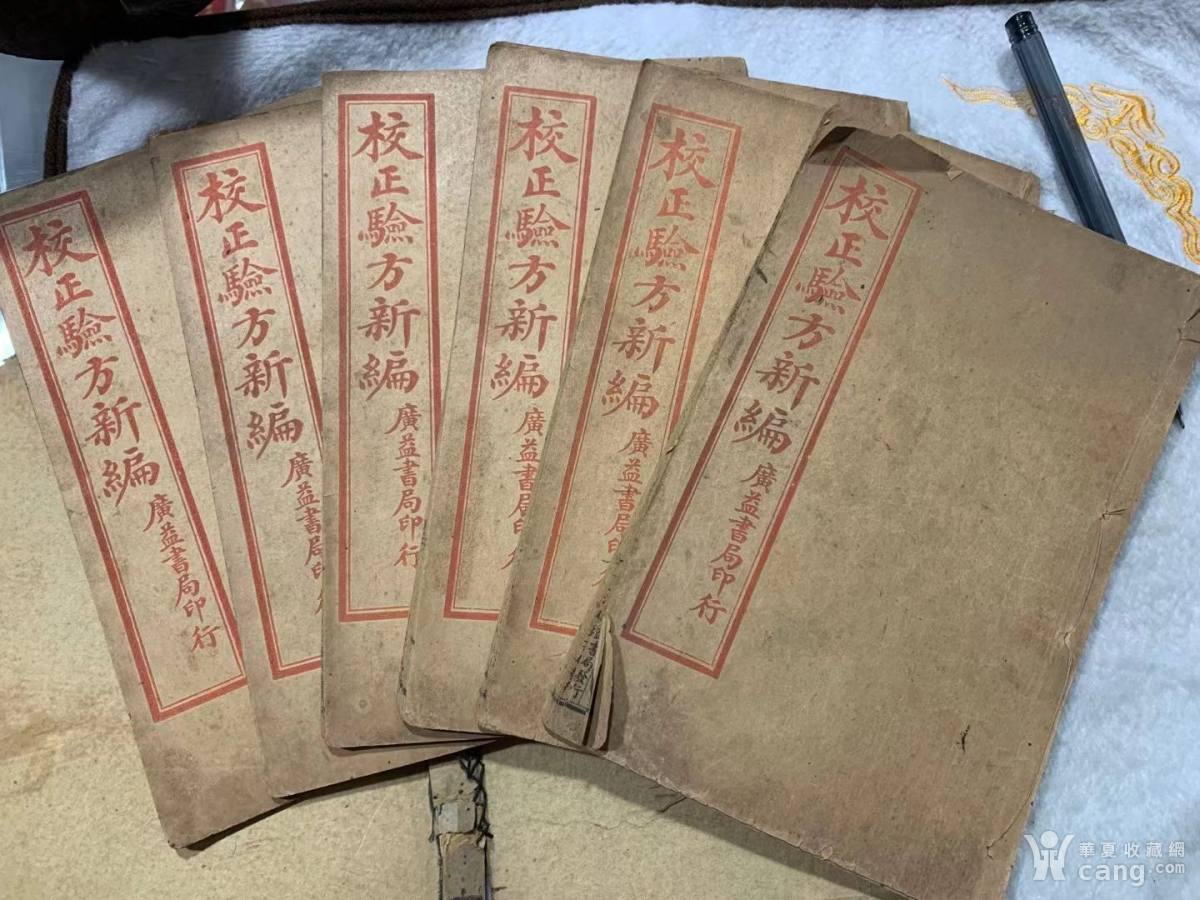 校正驗方新編
廣益書局印行
校正驗方新編
廣益書局印行
校正驗方新編
廣益書局印行
校正驗方新編
廣益書局印行
校正驗方新編
廣益書局印
校正驗方新編
廣益書局印行
書局發行
華夏收藏網
cang.com